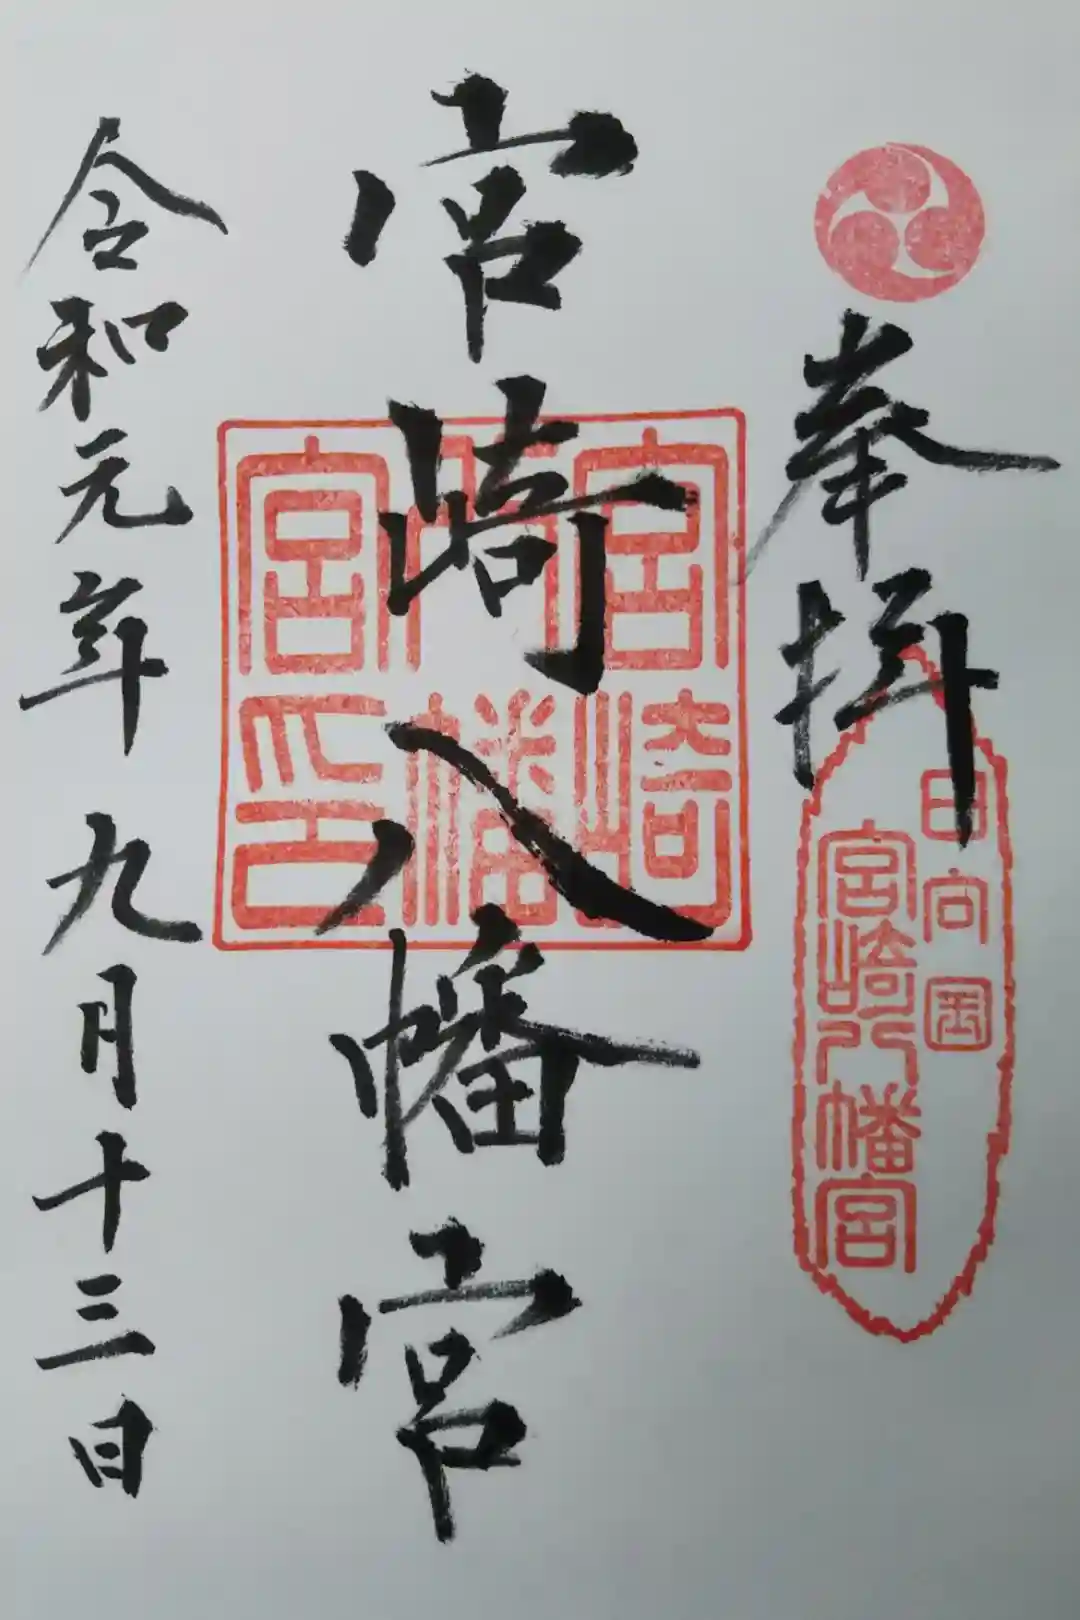 奉拝
日向国
宮崎八幡宮
宮崎八幡宮
宮崎
八幡
宮印
令和元年 九月十三日